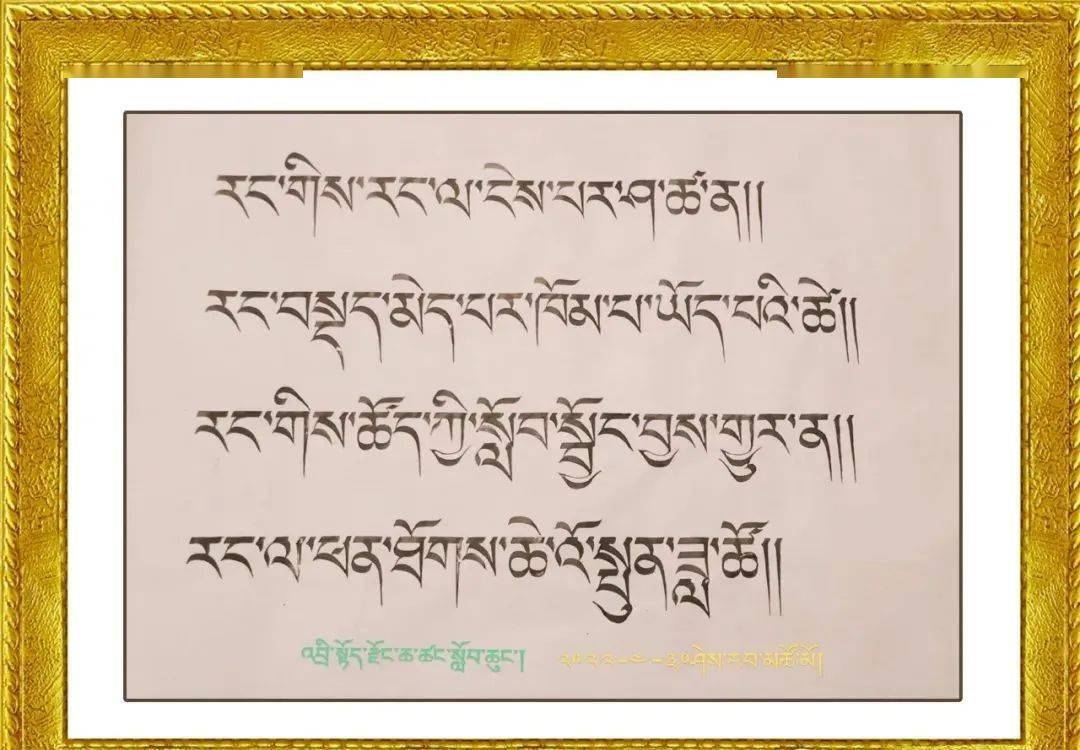 རང་གིས་རང་ལ་ངེས་པར་ཤ་ཚ་ན།།
རང་བསྡད་མེད་པར་ཁོམ་པ་ཡོད་པའི་ཚེ།།
རང་གིས་ཚོད་ཀྱི་སློབ་སྦྱོང་བྱས་གྱུར་ན།།
རང་ལ་ཕན་ཐོགས་ཆེ་འོ་སྤུན་ཟླ་ཚོ།།
འབྲི་སྟོད་རྫོང་ཆ་ཚང་སློབ་ཆུང་། ཤེས་རབ་མཚོ་མོ།